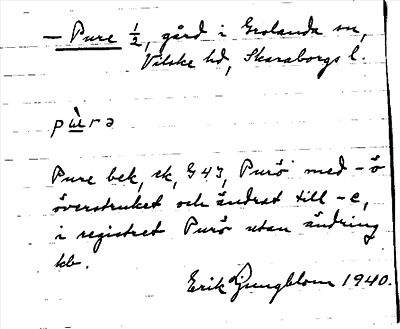 – Pure ½, gård i Grolanda sn,
Vilske hd, Skaraborgs l.
pùrə
Pure bek, ek, G43, Purö med -ö
överstruket och ändrat till -e,
i registret Purö utan ändring
kb.
Erik Ljungblom 1940.